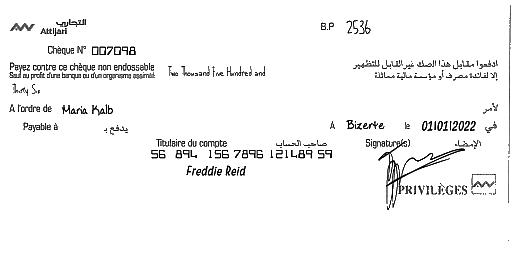 التجاري
Attijari
B.P 2536
Chèque N° 007098
Payez contre ce chèque non endossable
Sauf au profit d'une banque ou d'un organisme assimilé
Two Thousand Five Hundred and
Thirty Six
ادفعوا مقابل هذا الصك غير القابل للتظهير
إلا لفائدة مصرف أو مؤسسة مالية مماثلة
A l'ordre de Maria Kalb لأمر
Payable à يدفع بـ
A Bizerte le 01/01/2022 في
Titulaire du compte صاحب الحساب
Signature(s) الإمضاء
56 894 156 7896 121489 59
Freddie Reid
PRIVILÈGES